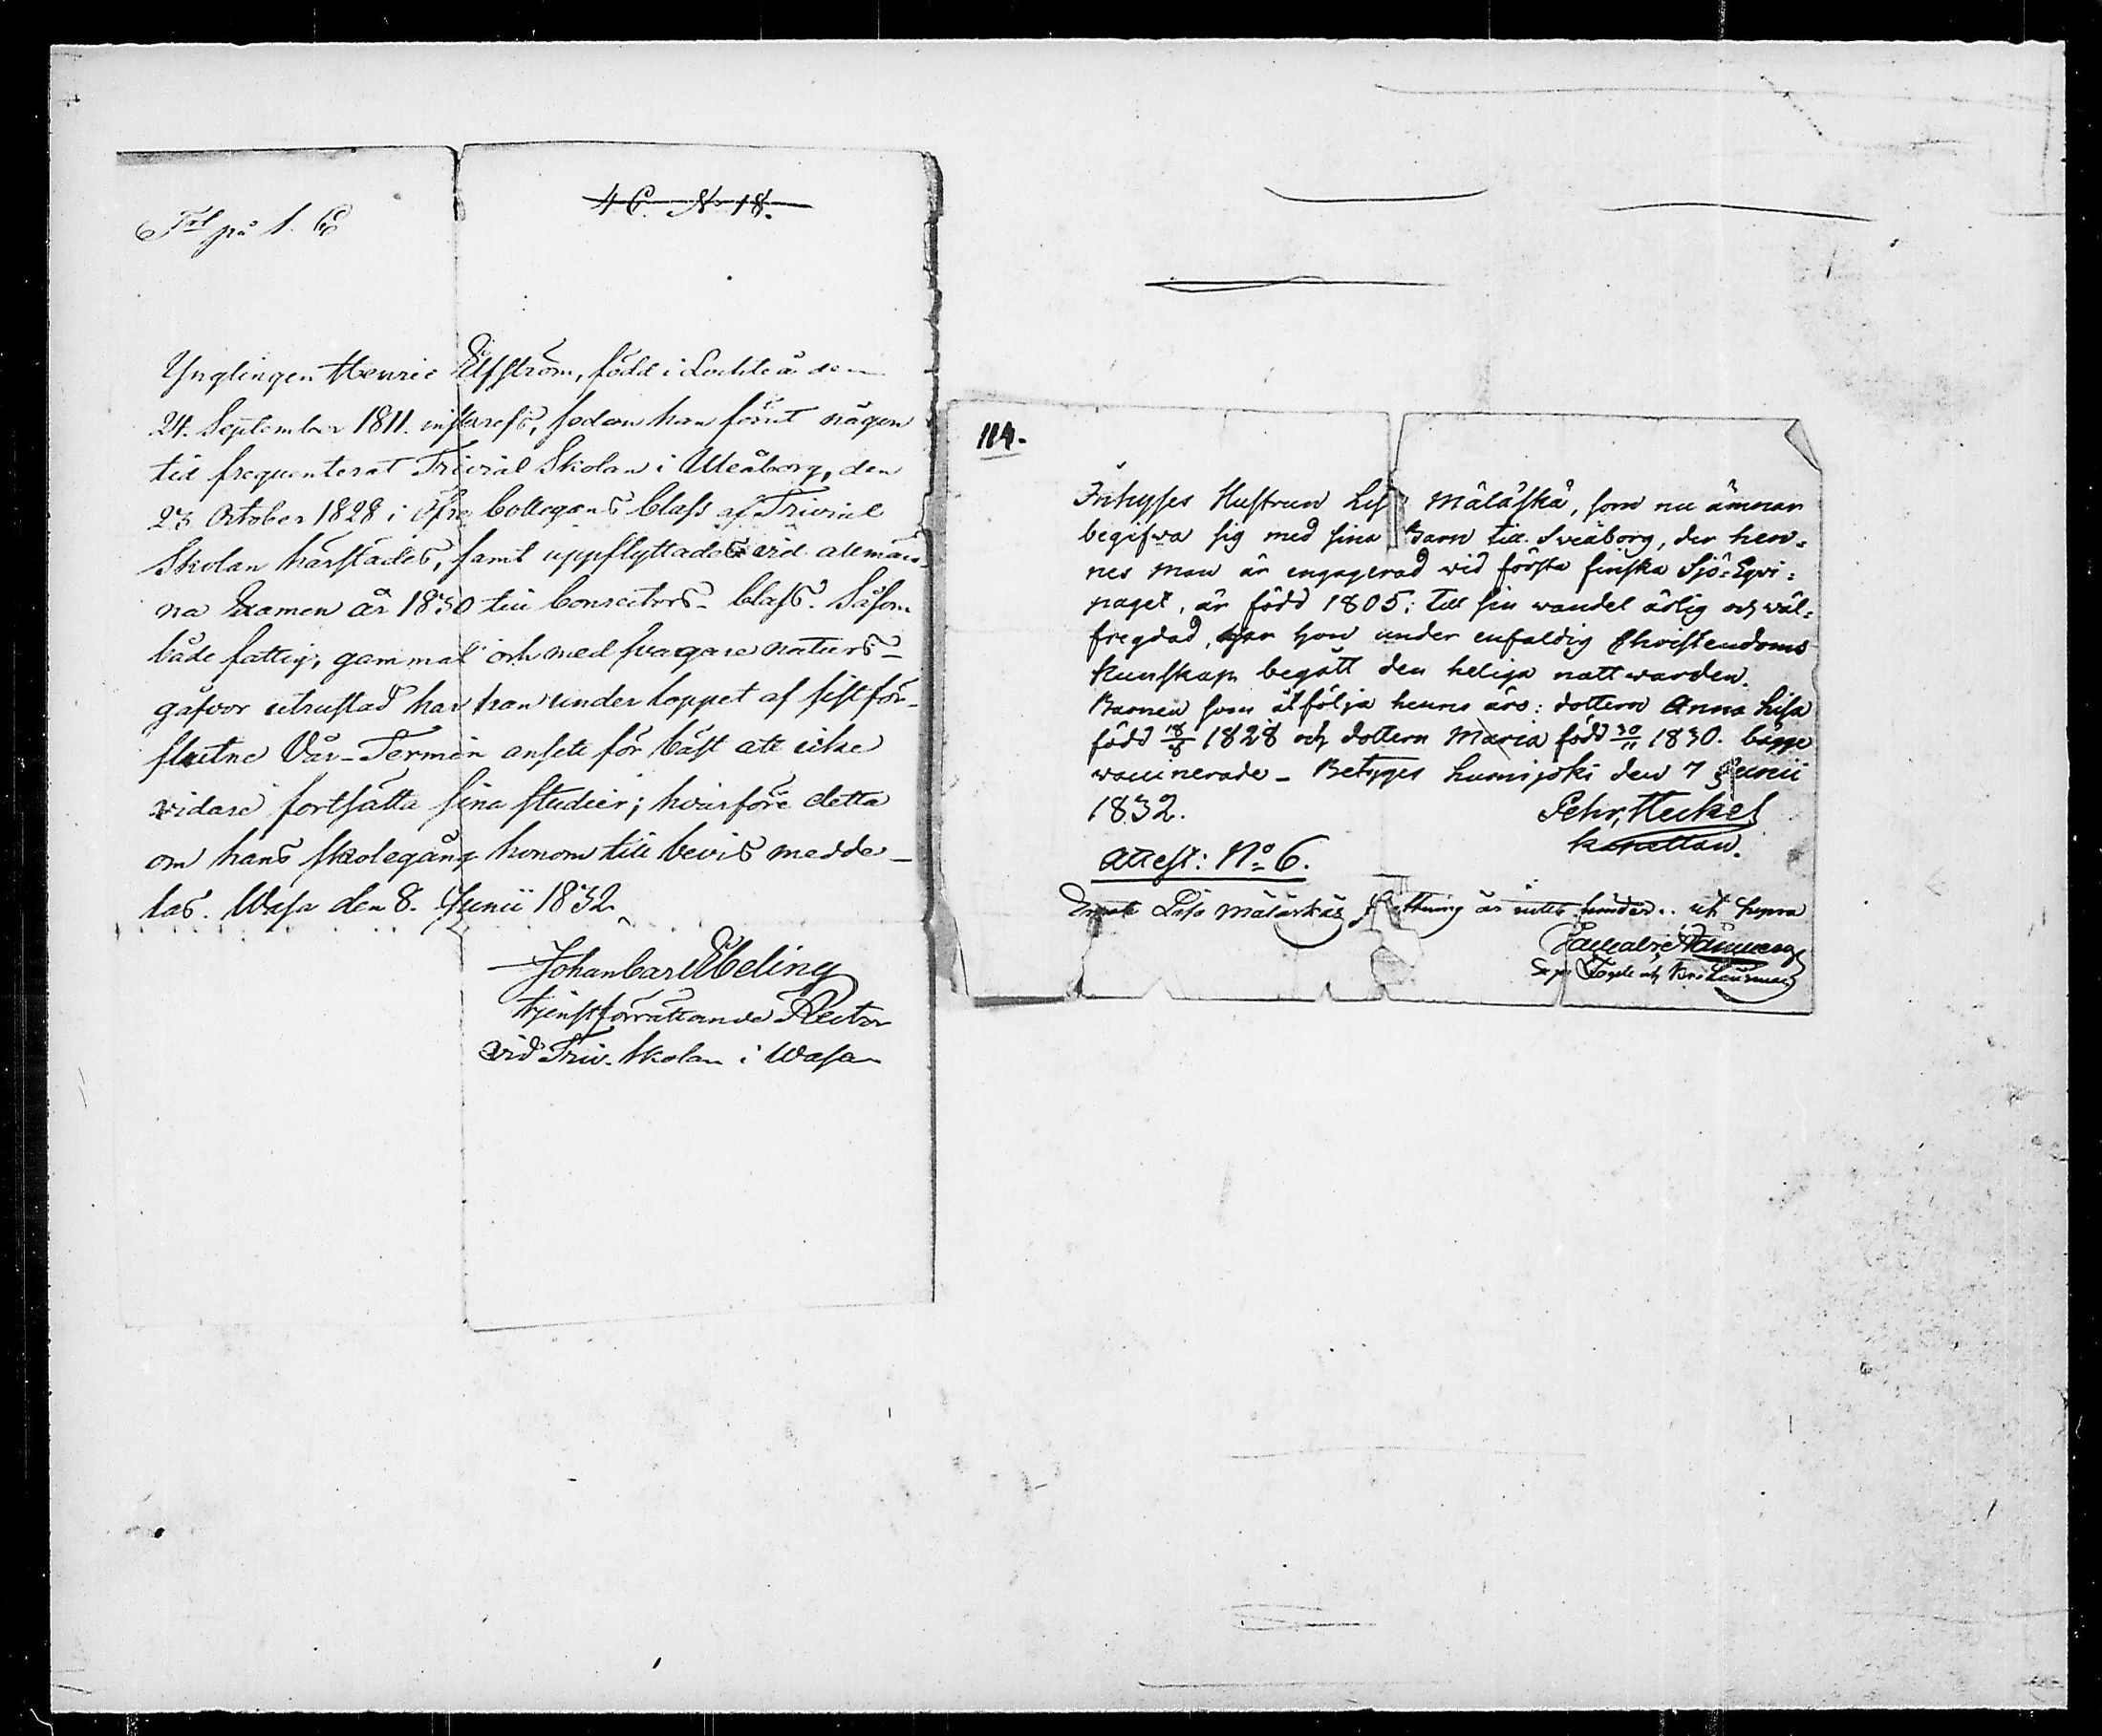 4 C. N 18.
på 1. C
Ynglingen Henric Elfström, född i Lochteå den
24. September 1811. inskrefs, sedan han förut någon
tid frequenterat Trivial Skolan i Uleåborg, den
23 October 1828 i Öfre Collegans Class af Trivial
Skolan härstädes, samt uppflyttades vid allmän-
na Examen år 1830 till Conrectors-Class. Såsom
både fattig, gammal och med svagare naturs-
gåfvor utrustad har han under loppet af sistför-
flutne Vår-Termin ansett för bäst att icke
vidare fortsätta sina studier; hvarföre detta
om hans skolegång honom till bevis medde-
las. Wasa den 8. Junii 1832.
Johan Carl Ebeling
tjenstförrättande Rector
vid Triv. Skolan i Wasa
114.
Inhyses Hustrun Lisa Mäläskä, som nu ämnar
begifwa sig med sina Barn till Sveaborg, der hen-
nes man är engagerad vid första finska Sjö-Eqvi-
paget, är född 1805; till sin wandel ärlig och wäl-
fregdad, har hon under enfaldig Christendoms
kunskap begått den heliga nattwarden.
Barnen som åtfölja henne äro: dottern Anna Lisa
född 18/8 1828 och dottern Maria född 30/11 1830. bägge
waccinerade - Betyges Lumijoki den 7 Junii
1832.
Pehr Heickel
Kapellan.
Attest: No 6.
Lisa Mäläskäs flyttning är intet hinder. ut supra